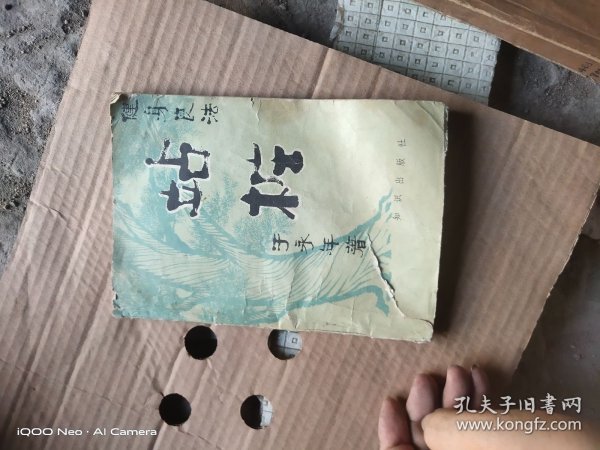 健身良法
站
桩
于永年著
知识出版社
iQOO Neo · AI Camera
孔夫子旧书网
www.kongfz.com